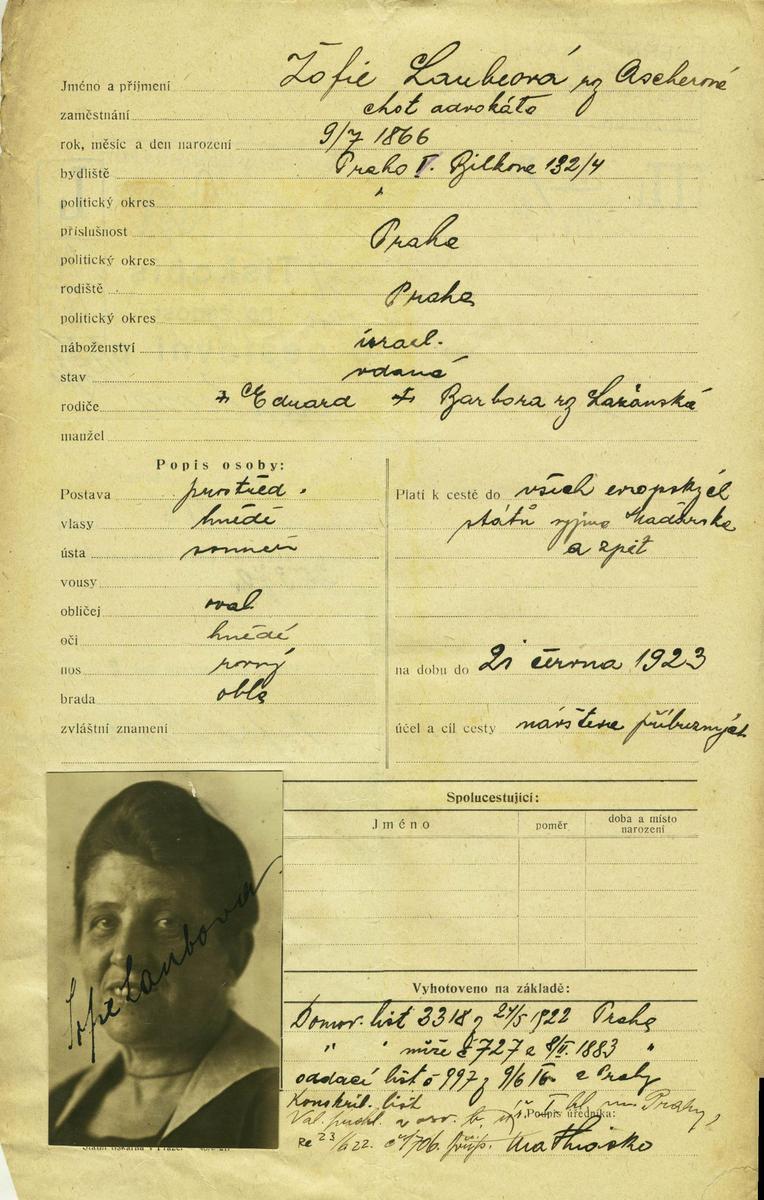 Jméno a příjmení Žofie Laubeová rz Ascherové
zaměstnání choť advokáta
rok, měsíc a den narození 9/7 1866
bydliště Praha V. Bílkova 132/4
politický okres "
příslušnost Praha
politický okres
rodiště Praha
politický okres
náboženství israel.
stav vdaná
rodiče Eduard Barbora rz Lažanská
manžel
Popis osoby:
Postava prostřed.
vlasy hnědé
ústa souměr
vousy
obličej oval
oči hnědé
nos rovný
brada oblá
zvláštní znamení
Platí k cestě do všech evropských
států vyjma Maďarska
a zpět
na dobu do 21 června 1923
účel a cíl cesty návštěva příbuzných
Spolucestující:
Jméno poměr doba a místo narození
Vyhotoveno na základě:
Domov. list 3318 z 24/5 922 Praha
" " muže č 727 z 1883 "
oddací list č 997 z 9/6 z Prahy
Konskrib. list
Podpis úředníka:
Žofie Laubova
Státní tiskárna v Praze.